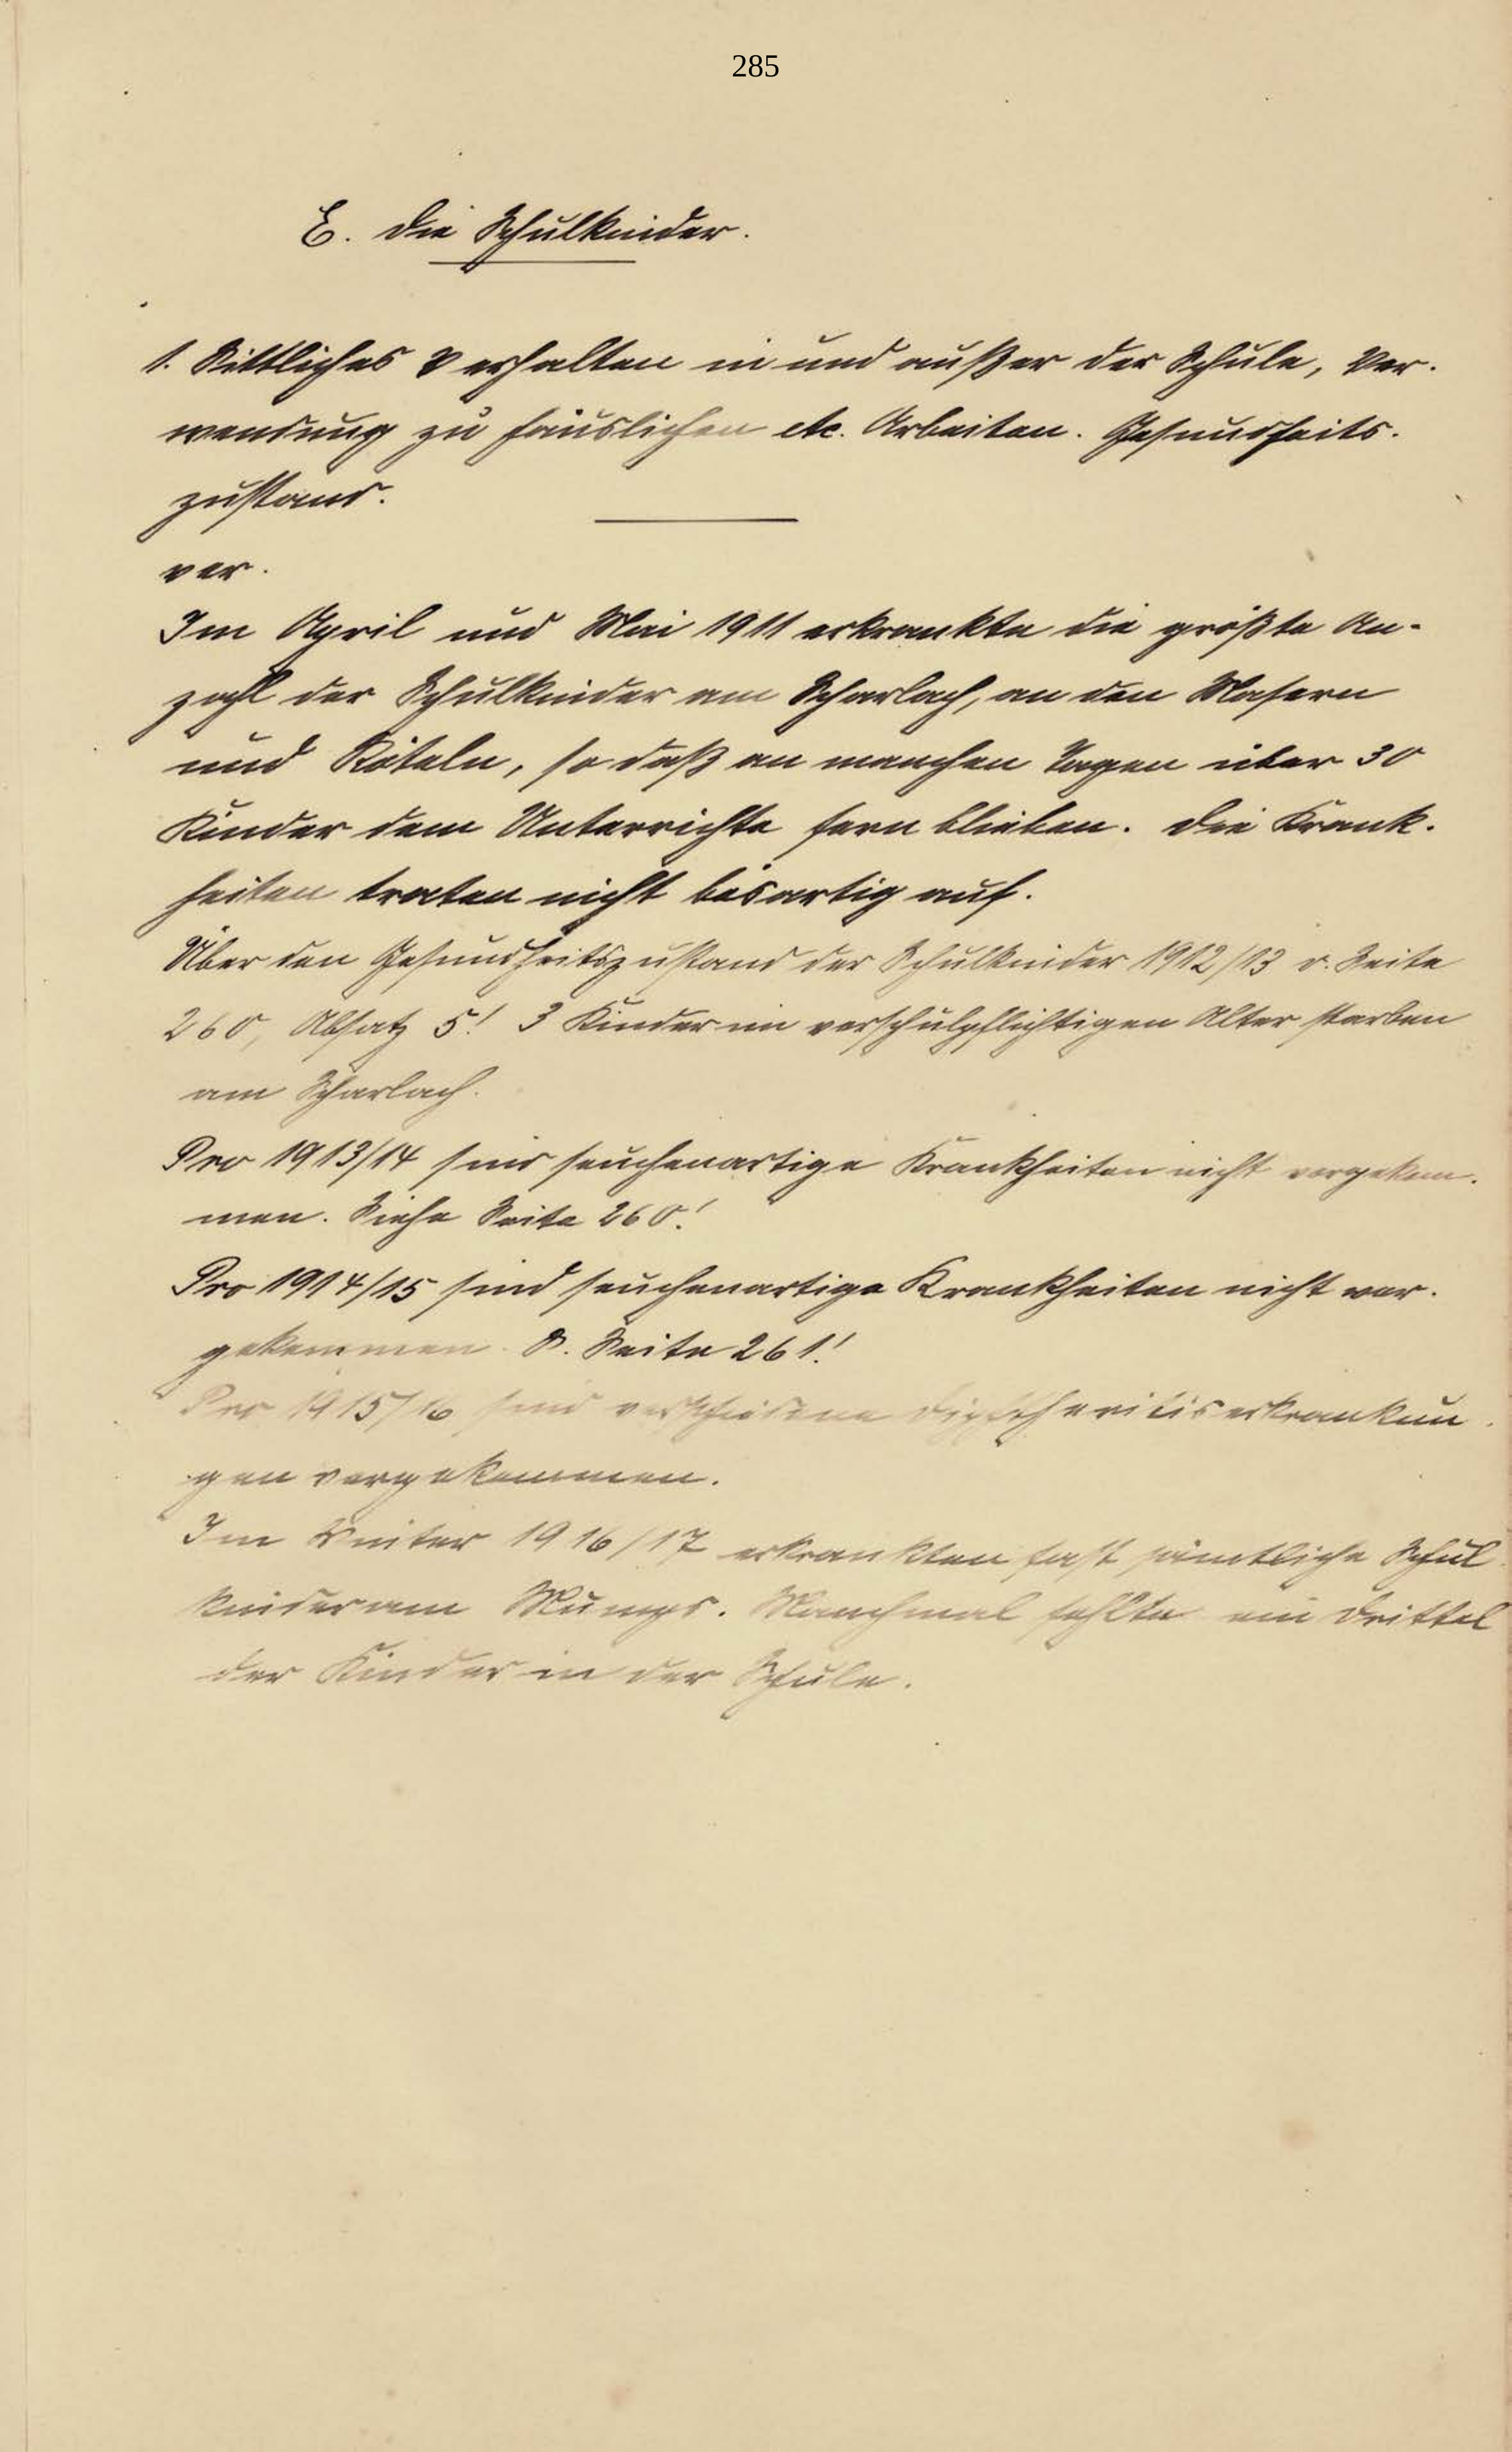 285
E. Die Schulkinder.
1. Sittliches Verhalten in und außer der Schule, Ver-
wendung zu häuslichen etc. Arbeiten. Gesundheits-
zustand.
Im April und Mai 1911 erkrankte die größte An-
zahl der Schulkinder am Scharlach, an den Masern
und Röteln, so daß an manchen Tagen über 30
Kinder dem Unterrichte fern blieben. Die Krank-
heiten traten nicht bösartig auf.
Über den Gesundheitszustand der Schulkinder 1912/13 v. Seite
260, Absatz 5! 3 Kinder im vorschulpflichtigen Alter starben
am Scharlach.
Pro 1913/14 sind seuchenartige Krankheiten nicht vorgekom-
men. Siehe Seite 260!
Pro 1914/15 sind seuchenartige Krankheiten nicht vor-
gekommen. S. Seite 261!
Pro 1915/16 sind verschiedene Diphtheritiserkrankun-
gen vorgekommen.
Im Winter 1916/17 erkrankten fast sämtliche Schul-
kinder am Mumps. Manchmal fehlte ein Drittel
der Kinder in der Schule.